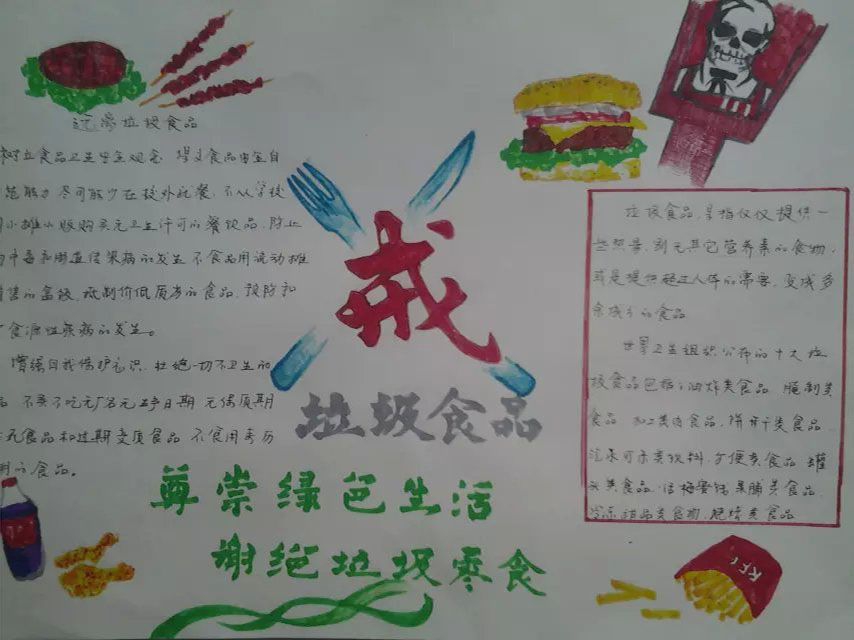 远离垃圾食品
树立食品卫生安全观念,增义食品安全自
能力 尽可能少在校外就餐,不从学校
小摊小贩购买无卫生许可的餐饮品,防止
中毒和肠道传染病的发生 不食用流动摊
售的盒饭,抵制价低质劣的食品,预防和
食源性疾病的发生。
增强自我保护意识,杜绝一切不卫生的
不要吃无厂名无生产日期 无保质期
无食品和过期变质食品 不食用来历
的食品。
戒
垃圾食品
尊崇绿色生活
谢绝垃圾零食
垃圾食品,是指仅仅提供一
些热量,别无其它营养素的食物,
或是提供超过人体的需要,变成多
余成分的食品
世界卫生组织公布的十大垃
圾食品包括:油炸类食品 腌制类
食品 加工类肉食品 饼干类食品
汽水可乐类饮料,方便类食品 罐
头类食品,话梅蜜饯果脯类食品,
冷冻甜品类食物,烧烤类食品
KFC